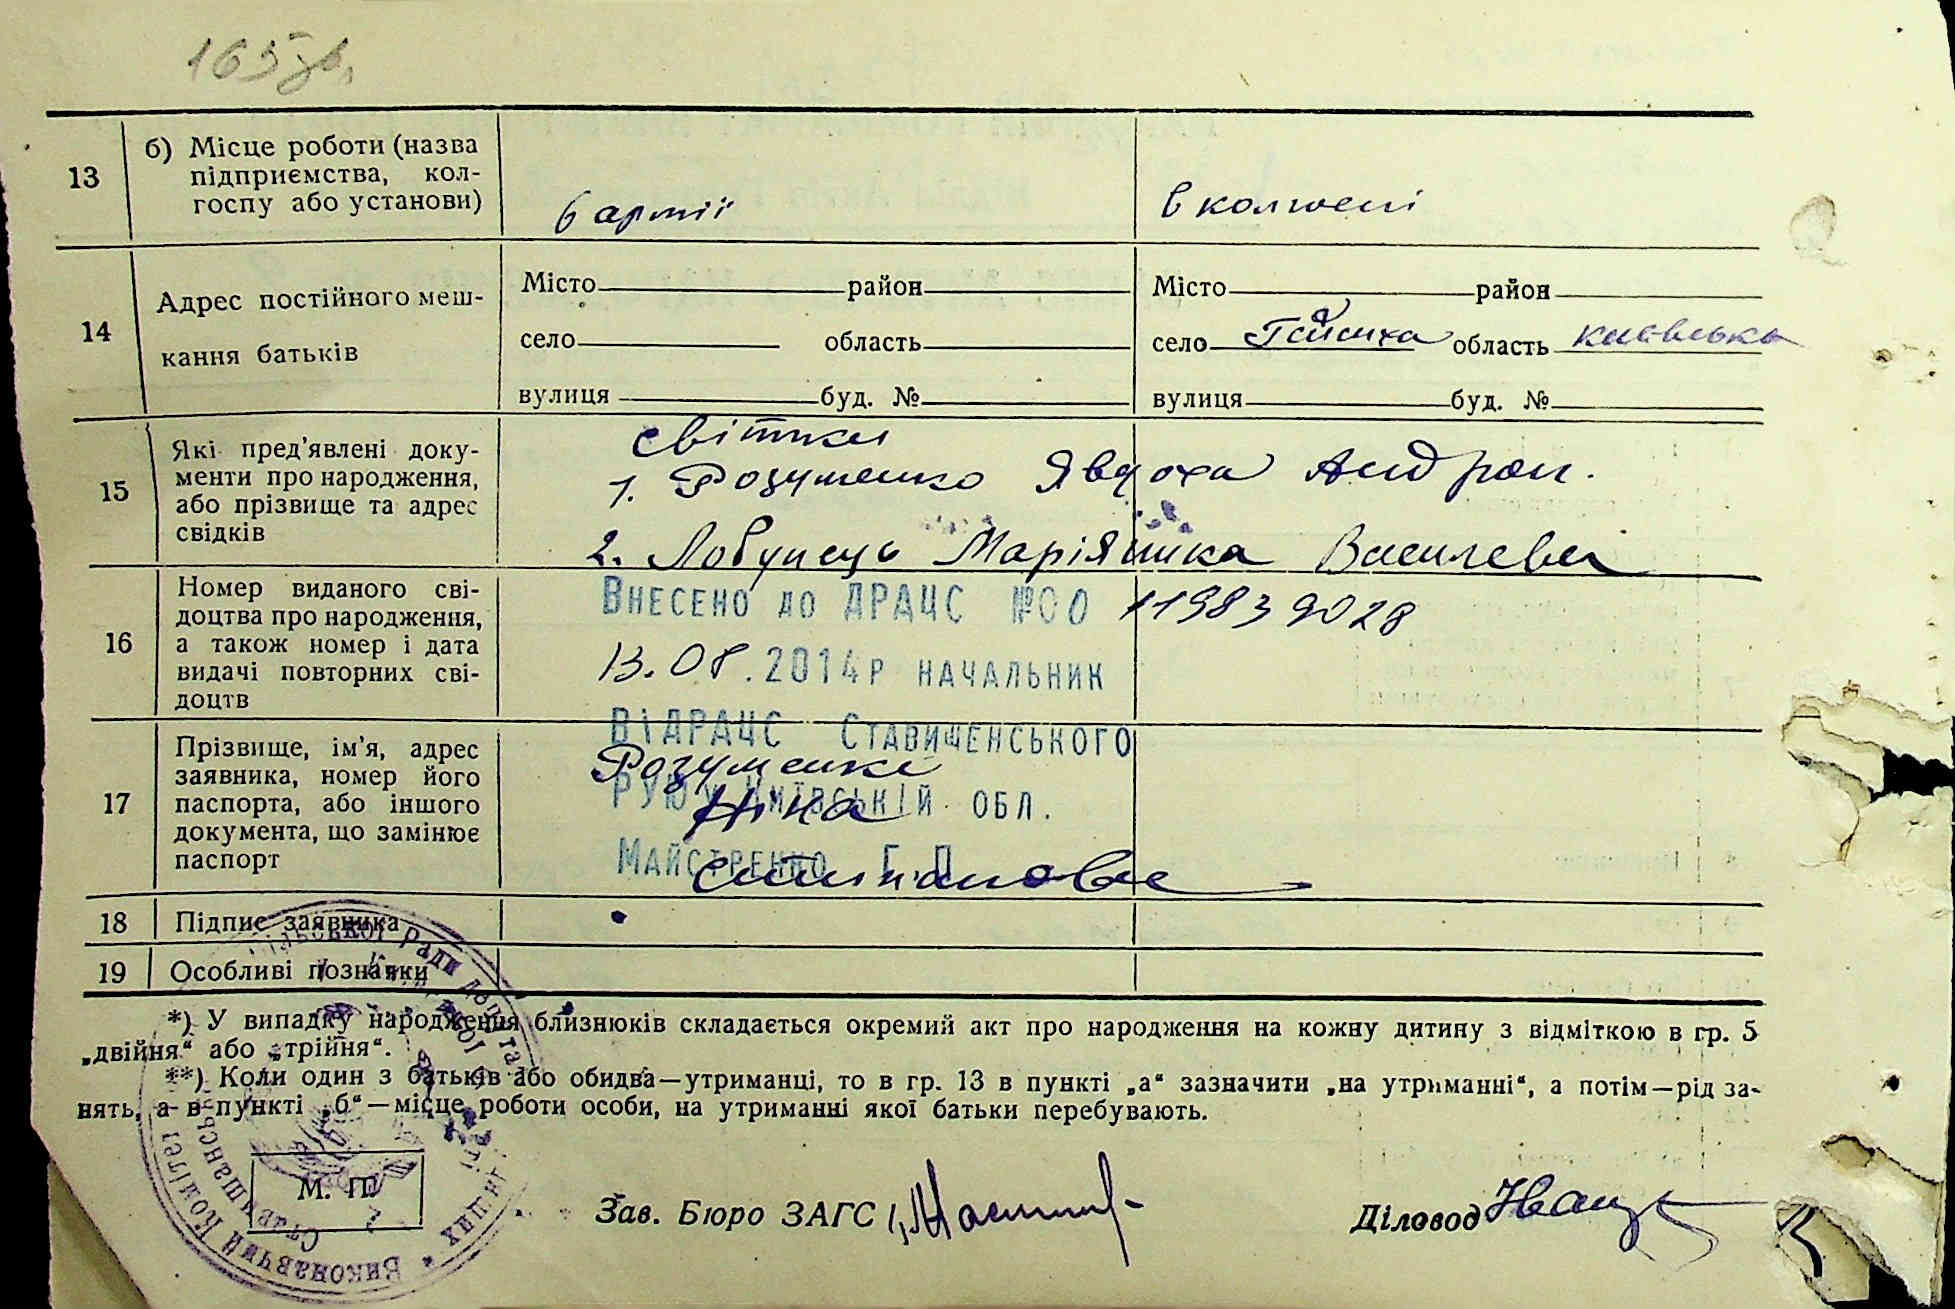 165 зв.
13
б) Місце роботи (назва
підприємства, кол-
госпу або установи)
в армії
в колгоспі
14
Адрес постійного меш-
кання батьків
Місто район
село область
вулиця буд. №
Місто район
село Гейсиха область київська
вулиця буд. №
15
Які пред'явлені доку-
менти про народження,
або прізвище та адрес
свідків
свідки
1. Розуменко Явдоха Андрон.
2. Лобунець Маріяшка Василева
16
Номер виданого сві-
доцтва про народження,
а також номер і дата
видачі повторних сві-
доцтв
Внесено до ДРАЦС №00 119839028
13.08.2014р начальник
ВідРАЦС Ставищенського
РУЮ у Київській обл.
Майстренко Г П
17
Прізвище, ім'я, адрес
заявника, номер його
паспорта, або іншого
документа, що замінює
паспорт
Розуменко
Ніна
Степанова
18
Підпис заявника
19
Особливі познаяки
*) У випадку народження близнюків складається окремий акт про народження на кожну дитину з відміткою в гр. 5
„двійня“ або „трійня“.
**) Коли один з батьків або обидва—утриманці, то в гр. 13 в пункті „а“ зазначити „на утриманні“, а потім—рід за-
нять, а в пункті „б“—місце роботи особи, на утриманні якої батьки перебувають.
М. П.
Зав. Бюро ЗАГС
Діловод
Виконавчий Комітет